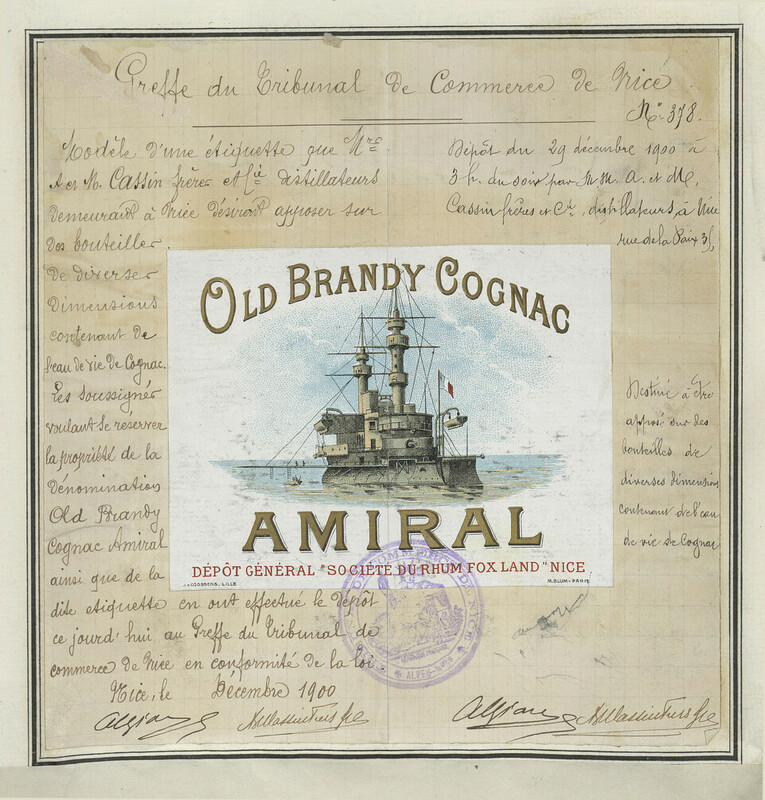 Greffe du Tribunal de Commerce de Nice
No 378.
Modèle d'une étiquette que Mrs
A et M. Cassin frères et Cie distillateurs
demeurant à Nice désirent apposer sur
des bouteilles
de diverses
dimensions
contenant de
l'eau de vie de Cognac.
Les soussignés
voulant se réserver
la propriété de la
dénomination
Old Brandy
Cognac Amiral
ainsi que de la
dite etiquette en ont effectué le dépôt
ce jourd'hui au Greffe du Tribunal de
commerce de Nice en conformité de la loi.
Nice, le Décembre 1900
Dépôt du 29 décembre 1900 à
3 h. du soir par M.M. A. et M.
Cassin frères et Cie, distillateurs, à Nice
rue de la Paix
OLD BRANDY COGNAC
AMIRAL
DÉPÔT GÉNÉRAL "SOCIÉTÉ DU RHUM FOX LAND" NICE
GOOSSENS, LILLE
M. BLUM - PARIS
Destiné à être
apposé sur des
bouteilles de
diverses dimensions
contenant de l'eau
de vie de Cognac
DE COMMERCE DE NICE